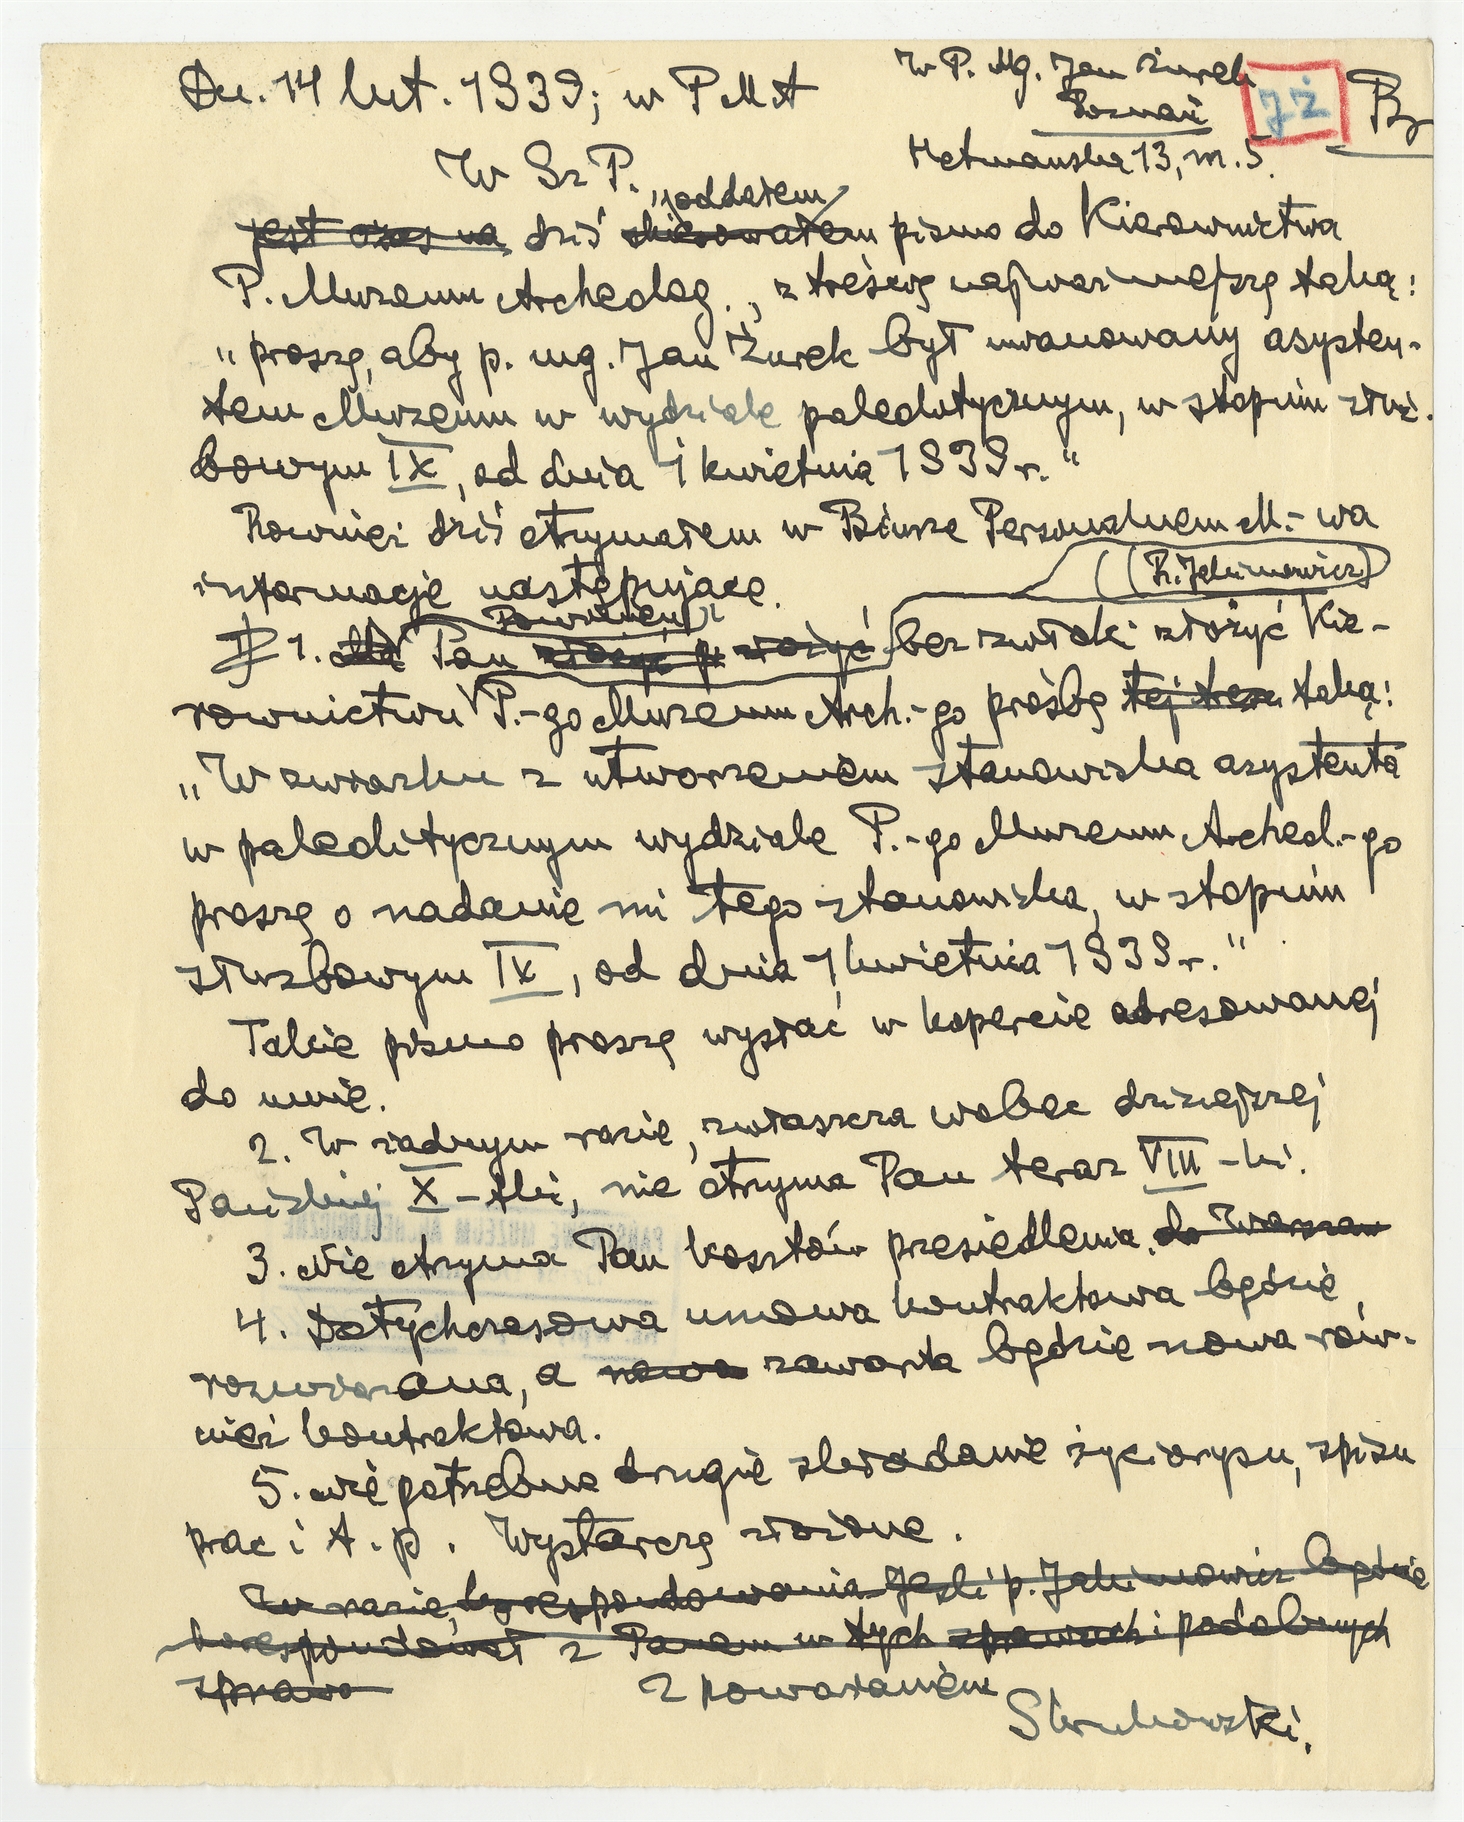 Dn. 14 lut. 1939; w PMA
W P. Mg. Jan Żurek
Poznań
Hetmańska 13, m. 5.
JŻ
W Sz P.
poddałem
jest czas na dziś skierowałem pismo do Kierownictwa
P. Muzeum Archeolog., z treścią najważniejszą taką:
"proszę, aby p. mg. Jan Żurek był mianowany asysten-
tem Muzeum w wydziale paleolitycznym, w stopniu służ-
bowym IX, od dnia 1 kwietnia 1939 r."
Również dziś otrzymałem w Biurze Personalnem M.-wa
(R. Jakimowicz)
informację następujące.
Powinien
1. Pan złożyć bezzwłoki złożyć Kie-
rownictwu P.-go Muzeum Arch.-go prośbę tej treści taką:
"W związku z utworzeniem stanowiska asystenta
w paleolitycznym wydziale P.-go Muzeum Archeol.-go
proszę o nadanie mi tego stanowiska, w stopniu
służbowym IX, od dnia 1 kwietnia 1939 r."
Takie pismo proszę wysłać w kopercie adresowanej
do mnie.
2. W żadnym razie, zwłaszcza wobec dzisiejszej
Pańskiej X-tki, nie otrzyma Pan teraz VIII-ki.
3. Nie otrzyma Pan kosztów przesiedlenia. do Warszaw
4. Dotychczasowa umowa kontraktowa będzie
rozwiązana, a nowa zawarta będzie nowa rów-
nież kontraktowa.
5. nie potrzebne drugie składanie życiorysu, spisu
prac i t. p. Wystarczą złożone.
W razie korespondowania Jeśli p. Jakimowicz będzie
korespondował z Panem w tych sprawach i podobnych
spraw
Z poważaniem
Krukowski.